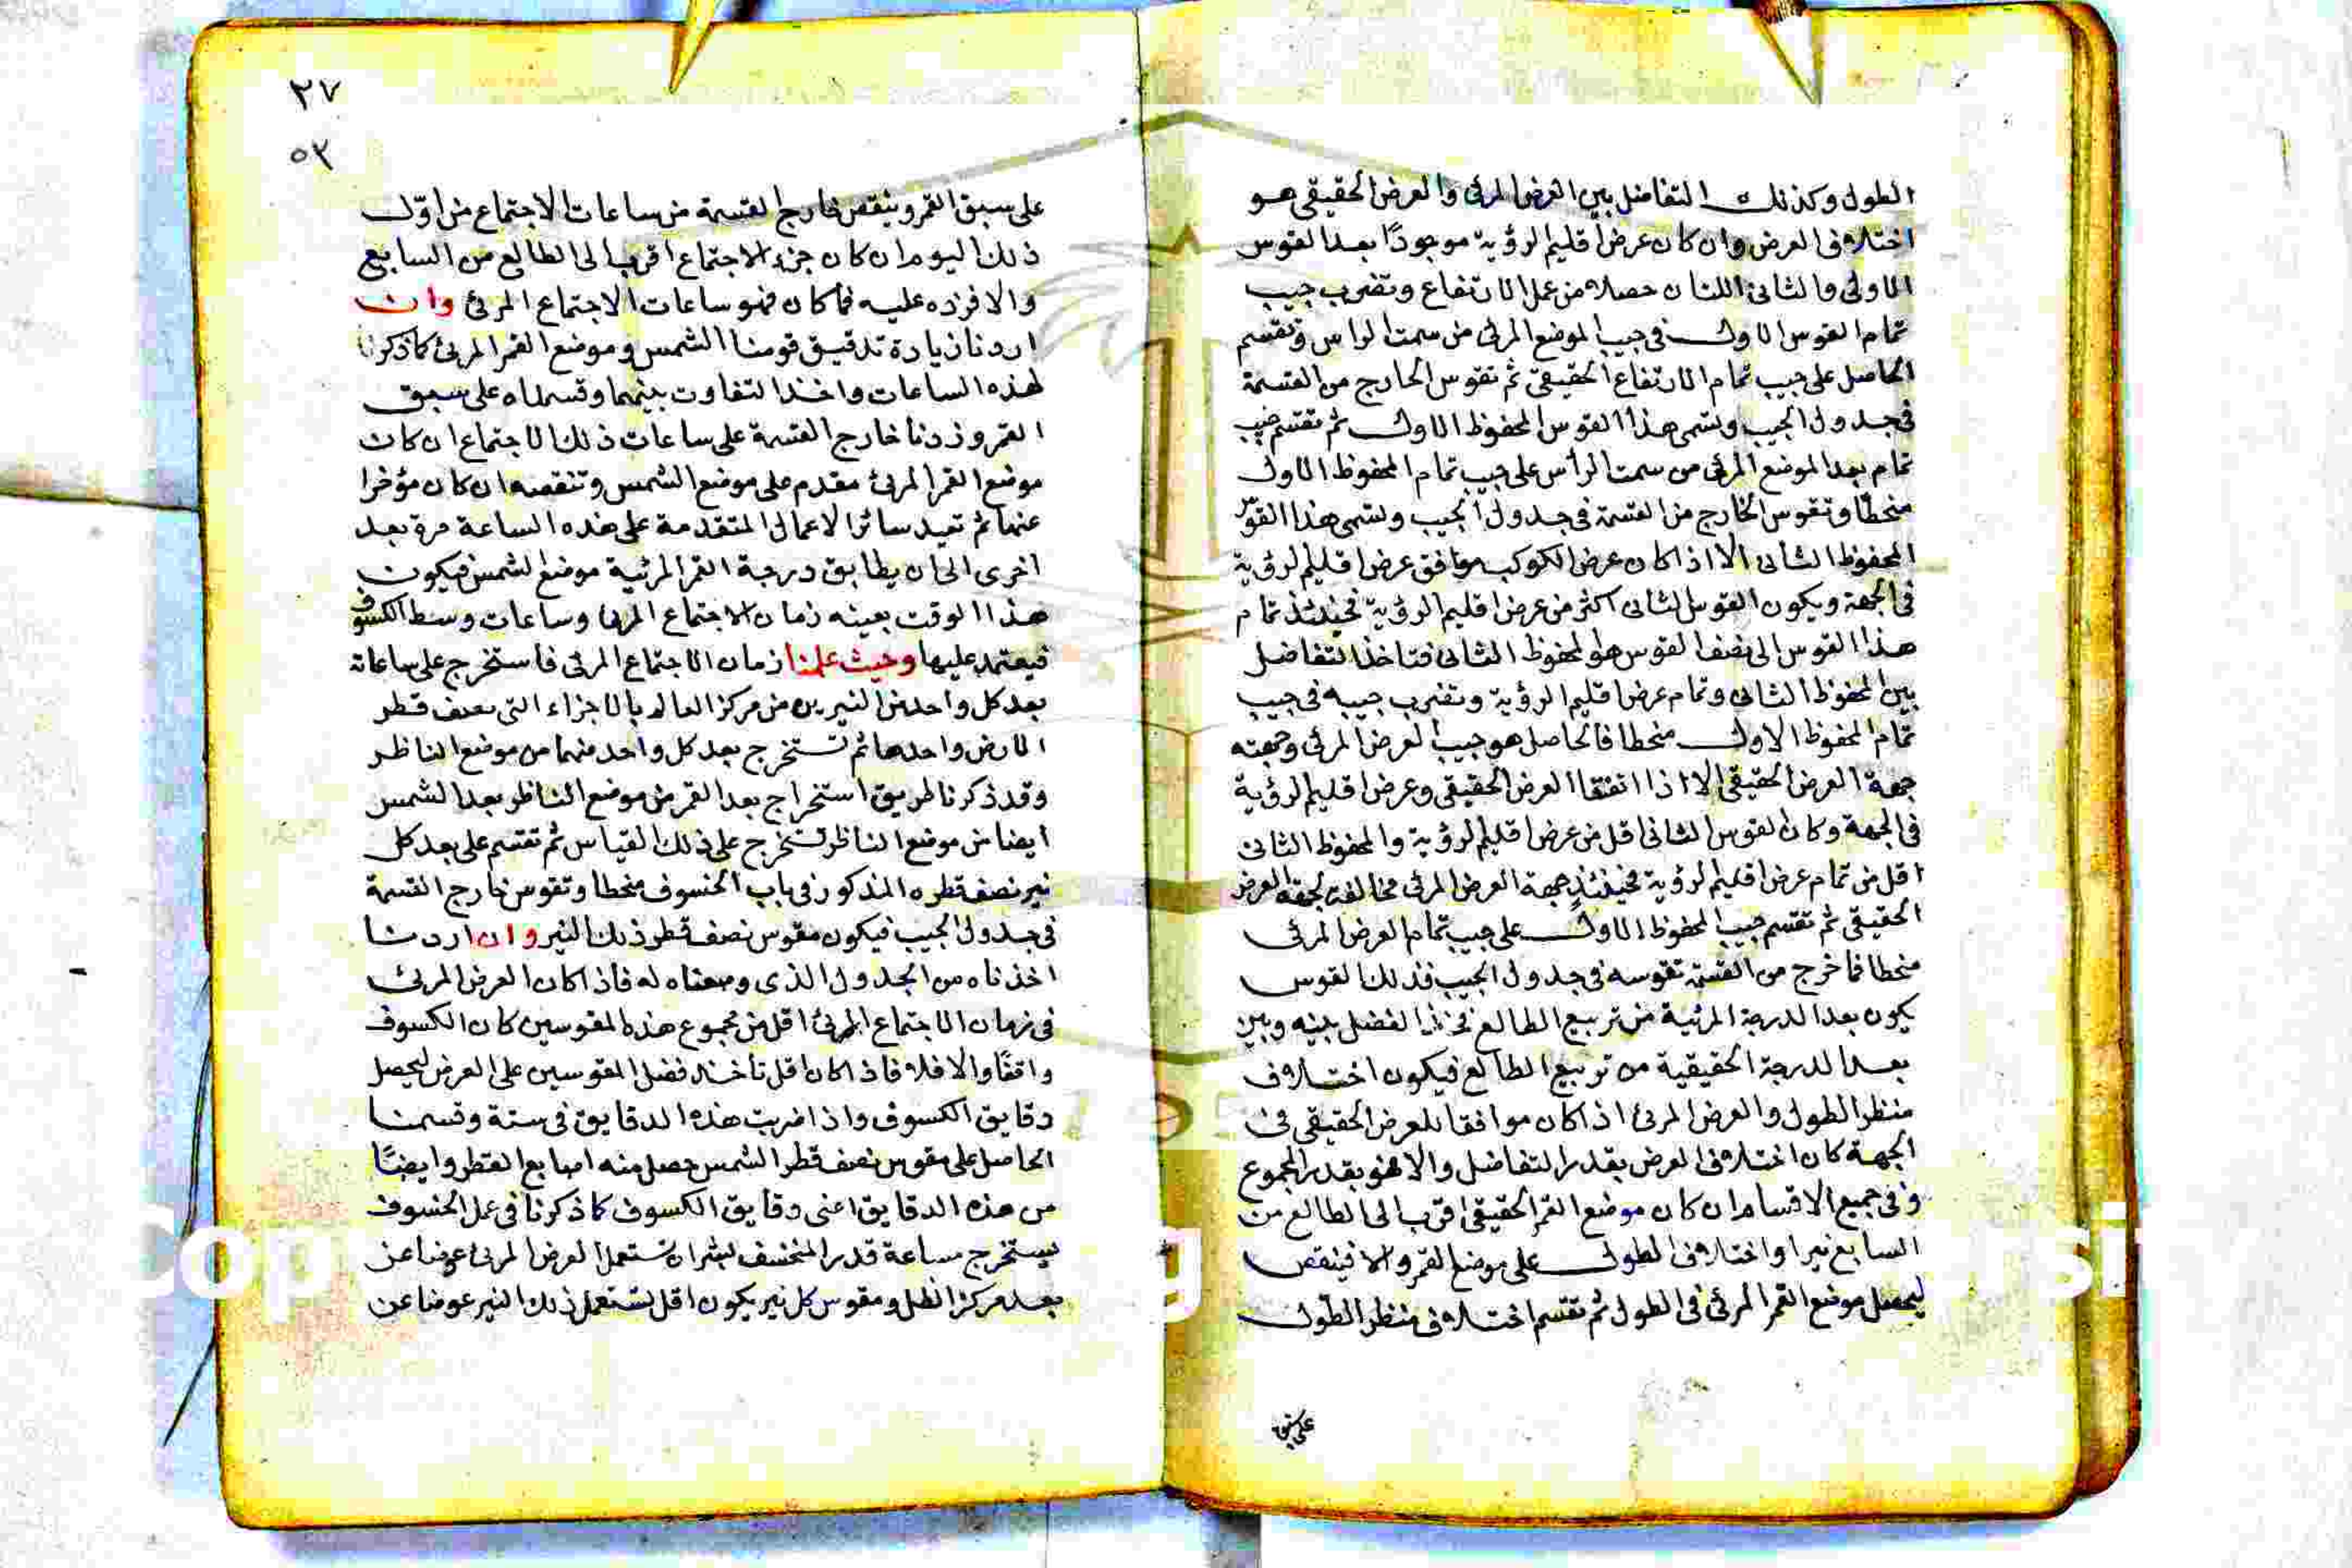 الطول وكذلك التفاضل بين العرض المرئى والعرض الحقيقى هو
اختلاف العرض وان كان عرض اقليم الرؤية موجودًا بعد القوس
الاولى والثانى اللتان حصلا من عمل الارتفاع وتضرب جيب
تمام القوس الاول فى جيب الموضع المرئى من سمت الراس وتقسم
الحاصل على جيب تمام الارتفاع الحقيقى ثم تقوس الخارج من القسمة
فى جدول الجيب ونسمى هذا القوس المحفوظ الاول ثم تقسم جيب
تمام بعد الموضع المرئى من سمت الرأس على جيب تمام المحفوظ الاول
منحطا وتقوس الخارج من القسمة فى جدول الجيب ونسمى هذا القوس
المحفوظ الثانى الا اذا كان عرض الكوكب موافق عرض اقليم الرؤية
فى الجهة ويكون القوس الثانى اكثر من عرض اقليم الرؤية فحينئذ تمام
هذا القوس الى نصف القوس هو المحفوظ الثانى فتاخذ التفاضل
بين المحفوظ الثانى وتمام عرض اقليم الرؤية وتضرب جيبه فى جيب
تمام المحفوظ الاول منحطا فالحاصل هو جيب العرض المرئى وجهته
جهة العرض الحقيقى الا اذا اتفقا العرض الحقيقى وعرض اقليم الرؤية
فى الجهة وكان القوس الثانى اقل من عرض اقليم الرؤية والمحفوظ الثانى
اقل من تمام عرض اقليم الرؤية فحينئذ جهة العرض المرئى مخالفة لجهة العرض
الحقيقى ثم تقسم جيب المحفوظ الاول على جيب تمام العرض المرئى
منحطا فما خرج من القسمة تقوسه فى جدول الجيب فذلك القوس
يكون بعد الدرجة المرئية من تربيع الطالع فخذ الفضل بينه وبين
بعد الدرجة الحقيقية من تربيع الطالع فيكون اختلاف
منظر الطول والعرض المرئ اذا كان موافقا للعرض الحقيقى فى
الجهة كان اختلاف العرض بقدر التفاضل والا فهو بقدر المجموع
وفى جميع الاقسام ان كان موضع القمر الحقيقى اقرب الى الطالع من
السابع نيرا واختلاف الطول على موضع القمر والا فينقص
ليحصل موضع القمر المرئى فى الطول ثم تقسم اختلاف منظر الطول
على سبق
٢٧
٥٣
على سبق القمر وينقص خارج القسمة من ساعات الاجتماع من اوّل
ذلك اليوم ان كان جزء الاجتماع اقرب الى الطالع من السابع
والا فزده عليه فما كان فهو ساعات الاجتماع المرئ وان
اردنا زيادة تدقيق قومنا الشمس وموضع القمر المرئ كما ذكرنا
لهذه الساعات واخذ التفاوت بينهما وقسمناه على سبق
القمر وزدنا خارج القسمة على ساعات ذلك الاجتماع ان كان
موضع القمر المرئ مقدم على موضع الشمس وتنقصه ان كان مؤخرا
عنها ثم تعيد سائر الاعمال المتقدمة على هذه الساعة مرة بعد
اخرى الى ان يطابق درجة القمر المرئية موضع الشمس فيكون
هذا الوقت بعينه زمان الاجتماع المرئ وساعات وسط الكسوف
فيعتمد عليها وحيث علمنا زمان الاجتماع المرئى فاستخرج على ساعاته
بعد كل واحد من النيرين من مركز العالم بالاجزاء التى نصف قطر
الارض واحدها ثم تستخرج بعد كل واحد منهما من موضع الناظر
وقد ذكرنا طريق استخراج بعد القمر من موضع الناظر وبعد الشمس
ايضا من موضع الناظر تستخرج على ذلك القياس ثم تقسم على بعد كل
نير نصف قطره المذكور فى باب الخسوف منحطا وتقوس خارج القسمة
فى جدول الجيب فيكون مقوس نصف قطر ذلك النير وان اردنا
اخذناه من الجدول الذى وضعناه له فاذا كان العرض المرئ
فى زمان الاجتماع المرئ اقل من مجموع هذه المقوسين كان الكسوف
واقعًا والا فلا فاذا كان اقل تاخذ فضل المقوسين على العرض ليحصل
دقايق الكسوف واذا ضربت هذه الدقايق فى ستة وقسمنا
الحاصل على مقوس نصف قطر الشمس حصل منه اصابع القطر وايضًا
من هذه الدقايق اعنى دقايق الكسوف كما ذكرنا فى عمل الخسوف
يستخرج ساعة قدر المنخسف بشرط ان تستعمل العرض المرئ عوضا عن
بعد مركز الظل ومقوس كل نير يكون اقل تستعمل ذلك النير عوضا عن